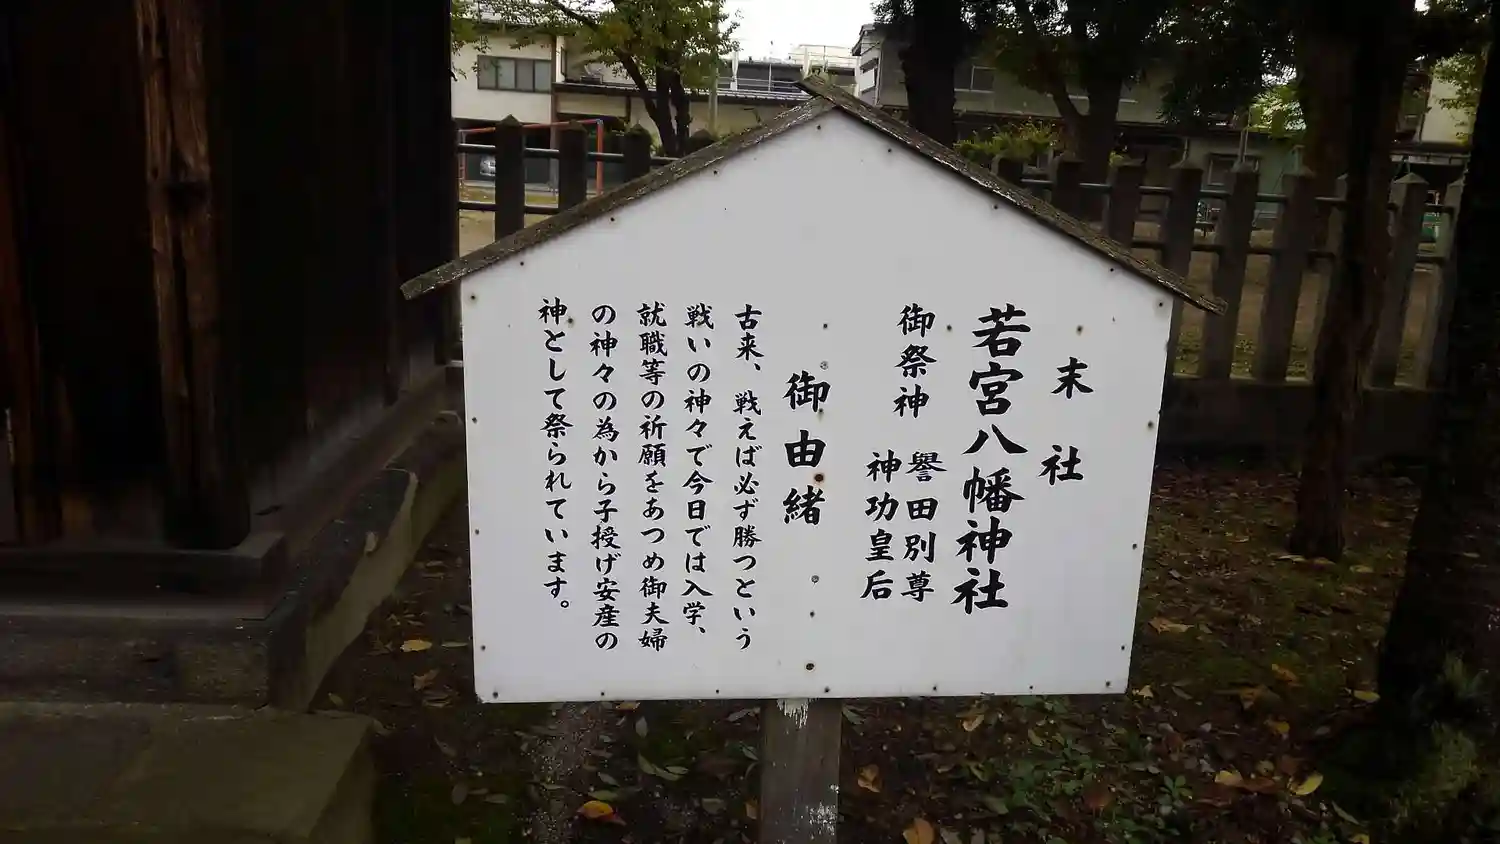 末社
若宮八幡神社
御祭神
誉田別尊
神功皇后
御由緒
古来、戦えば必ず勝つという
戦いの神々で今日では入学、
就職等の祈願をあつめ御夫婦
の神々の為から子授げ安産の
神として祭られています。